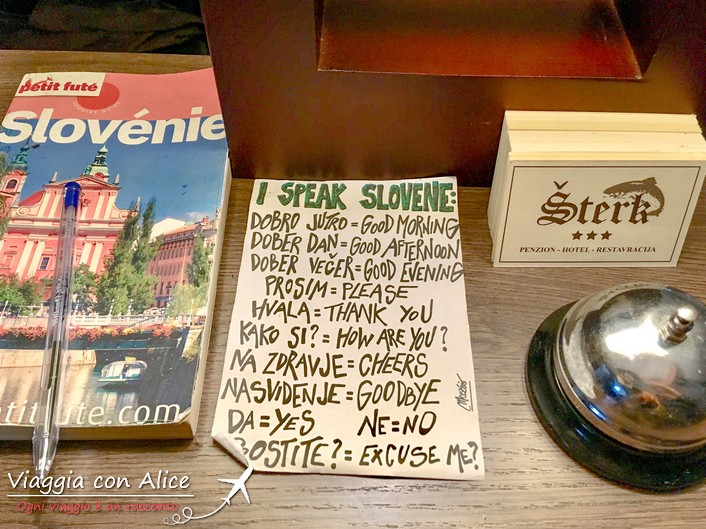 petit futé
Slovénie
I SPEAK SLOVENE:
DOBRO JUTRO = GOOD MORNING
DOBER DAN = GOOD AFTERNOON
DOBER VEČER = GOOD EVENING
PROSIM = PLEASE
HVALA = THANK YOU
KAKO SI? = HOW ARE YOU?
NA ZDRAVJE = CHEERS
NASVIDENJE = GOODBYE
DA = YES NE = NO
OSTITE? = EXCUSE ME?
Šterk
★★★
PENZION - HOTEL - RESTAVRACIJA
.com
Viaggia con Alice
Ogni viaggio è un racconto